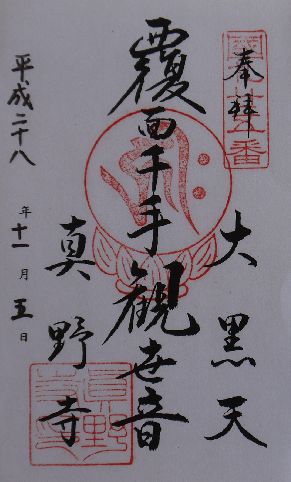 奉拝
大黒天
覆面千手観世音
真野寺
平成二十八年十一月五日